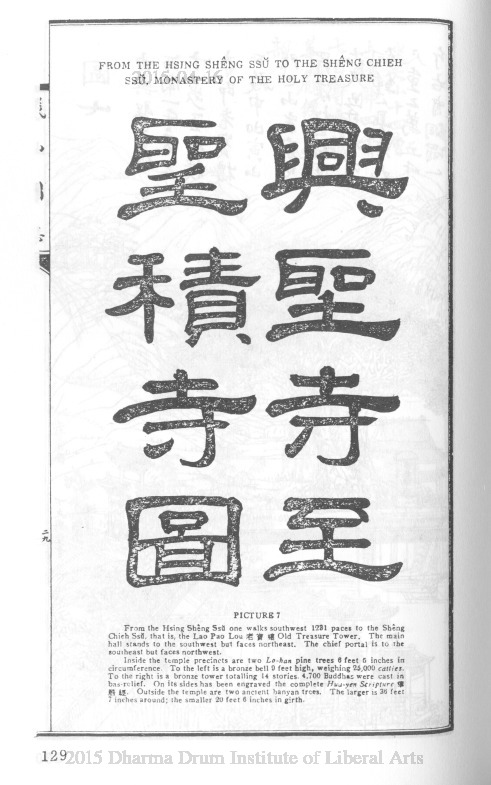 FROM THE HSING SHÊNG SSŬ TO THE SHÊNG CHIEH
SSŬ, MONASTERY OF THE HOLY TREASURE
興聖寺至
聖積寺圖
二九
PICTURE 7
From the Hsing Shêng Ssŭ one walks southwest 1281 paces to the Shêng
Chieh Ssŭ, that is, the Lao Pao Lou 老寶樓 Old Treasure Tower. The main
hall stands to the southwest but faces northeast. The chief portal is to the
southeast but faces northwest.
Inside the temple precincts are two Lo-han pine trees 8 feet 5 inches in
circumference. To the left is a bronze bell 9 feet high, weighing 25,000 catties.
To the right is a bronze tower totalling 14 stories. 4,700 Buddhas were cast in
bas-relief. On its sides has been engraved the complete Hua-yen Scripture 華
嚴經. Outside the temple are two ancient banyan trees. The larger is 36 feet
7 inches around; the smaller 20 feet 6 inches in girth.
129
2015 Dharma Drum Institute of Liberal Arts